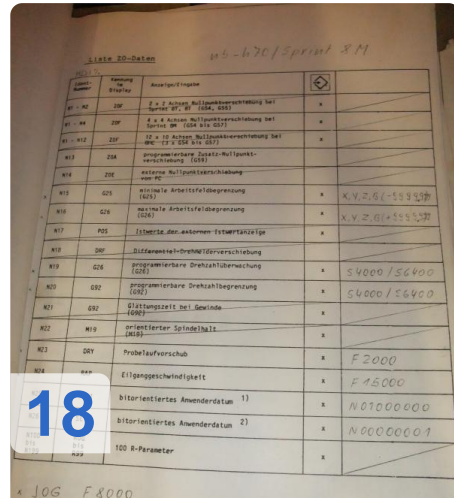 Liste ZO-Daten
Ident-Nummer Kennung im Display Anzeige/Eingabe
N1 - N2 ZOF 2 x 2 Achsen Nullpunktverschiebung bei
Sprint 8T, (G54, G55) x
N1 - N4 ZOF 4 x 4 Achsen Nullpunktverschiebung bei
Sprint 8M (G54 bis G57) x
N1 - N12 ZOF 12 x 10 Achsen Nullpunktverschiebung bei
(3 x G54 bis G57) x
N13 ZOA programmierbare Zusatz-Nullpunkt-
verschiebung (G59) x
N14 ZOE externe Nullpunktverschiebung
von PC
N15 G25 minimale Arbeitsfeldbegrenzung
(G25) x
N16 G26 maximale Arbeitsfeldbegrenzung
(G26) x
N17 POS Istwerte der externen Istwertanzeige x
N18 DRF Differential-Drehmelderverschiebung
N19 G26 programmierbare Drehzahlüberwachung
(G26) x S4000/S6400
N20 G92 programmierbare Drehzahlbegrenzung
(G92) x S4000/S6400
N21 G92 Glättungszeit bei Gewinde
(G92) x
N22 M19 orientierter Spindelhalt
(M19) x
N23 DRY Probelaufvorschub x F2000
N24 Eilganggeschwindigkeit x F16000
bitorientiertes Anwenderdatum 1) x N01000000
bitorientiertes Anwenderdatum 2) x N00000001
bis
R99 100 R-Parameter x
JOG F8000
18